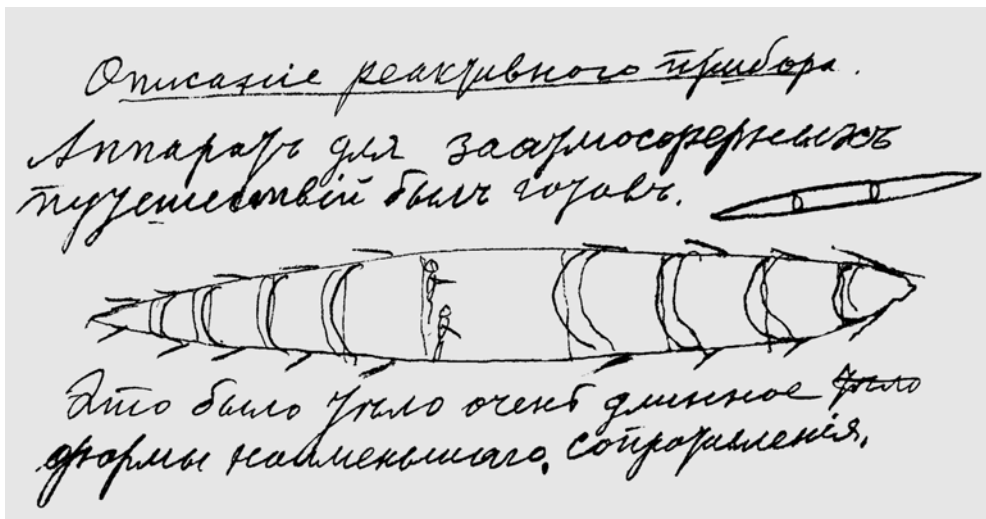 Описаніе реактивного прибора.
Аппаратъ для заатмосферныхъ
путешествій былъ готовъ.
Это было тѣло очень длинное тѣло
формы наименьшаго сопротивленія.